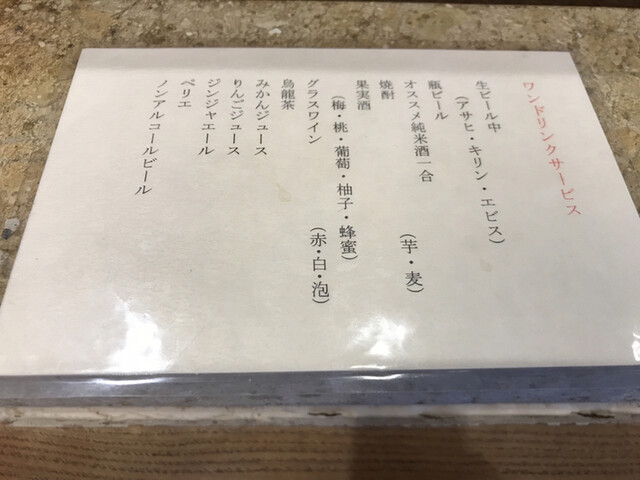 ワンドリンクサービス
生ビール中
（アサヒ・キリン・エビス）
瓶ビール
オススメ純米酒一合
焼酎　（芋・麦）
果実酒
（梅・桃・葡萄・柚子・蜂蜜）
グラスワイン　（赤・白・泡）
烏龍茶
みかんジュース
りんごジュース
ジンジャエール
ペリエ
ノンアルコールビール